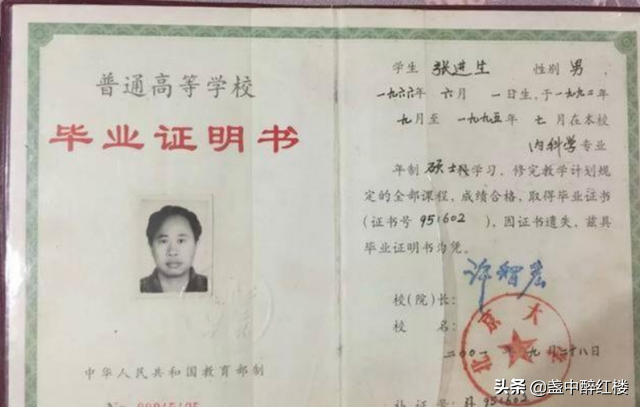 普通高等学校
毕业证明书
中华人民共和国教育部制
学生 张进生 性别 男 ，
一九六六年 六月 一日生，于一九九二年
九月至 一九九五年 七月在本校
内科学专业
年制 硕士 学习，修完教学计划规
定的全部课程，成绩合格，取得毕业证书
(证书号 951602 )，因证书遗失，兹具
毕业证明书为凭。
校(院)长：
许智宏
校 名：
北京大学
二00一年九月二十八日
951602
头条 @盏中醉红楼